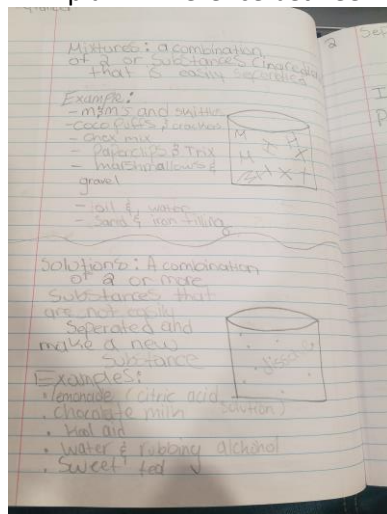 Mixtures: a combination
of 2 or substances (ingredients)
that is easily
Example:
- m&ms and skittles
- coco puffs & crackers
- chex mix
- Paperclips & Trix
- marshmallows &
gravel
- & water
- Sand & iron filing
Solutions: A combination
of 2 or more
Substances that
are not easily
Seperated and
make a new
Substance
Examples:
• lemonade (citric acid
solution)
• chocolate milk
• kool aid
• water & rubbing alchohol
• Sweet tea
2
Sep